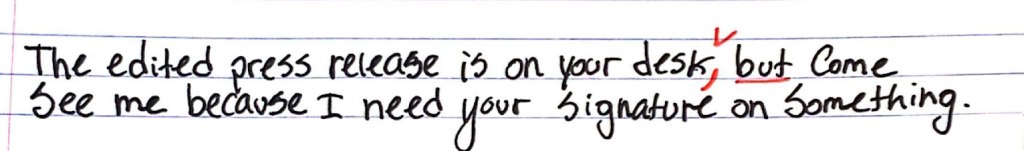 The edited press release is on your desk, but Come
See me because I need your signature on Something.